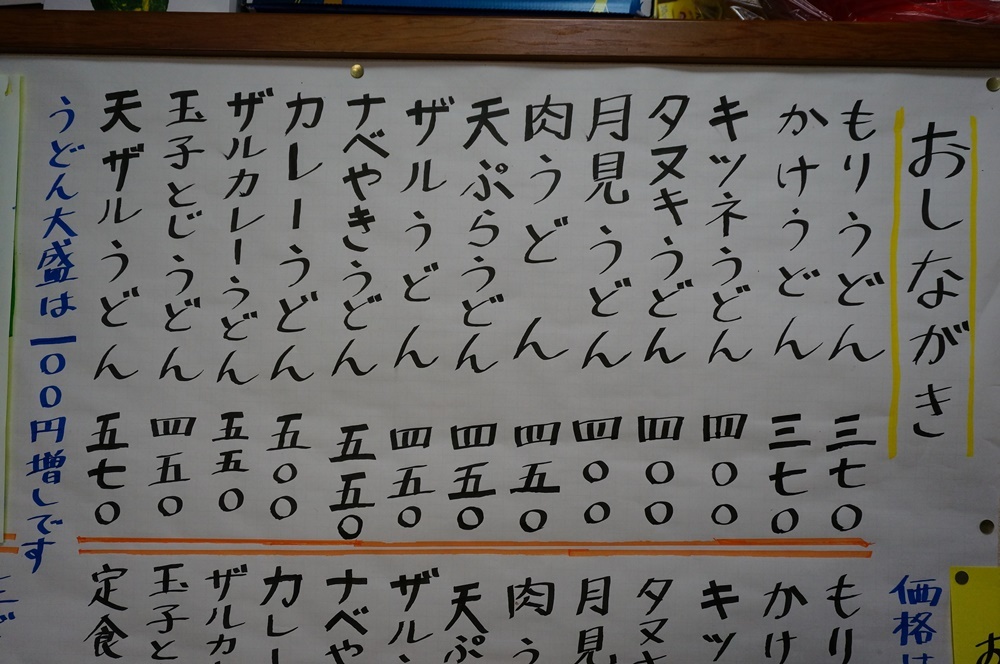 おしながき
もりうどん 三七〇
かけうどん 三七〇
キツネうどん 四〇〇
タヌキうどん 四〇〇
月見うどん 四〇〇
肉うどん 四五〇
天ぷらうどん 四五〇
ザルうどん 四五〇
ナベやきうどん 五五〇
カレーうどん 五〇〇
ザルカレーうどん 五五〇
玉子とじうどん 四五〇
天ザルうどん 五七〇
うどん大盛は一〇〇円増しです
価格は
もり
かけ
キツ
タヌ
月見
肉う
天ぷ
ザル
ナベや
カレー
ザルカ
玉子と
定食
お